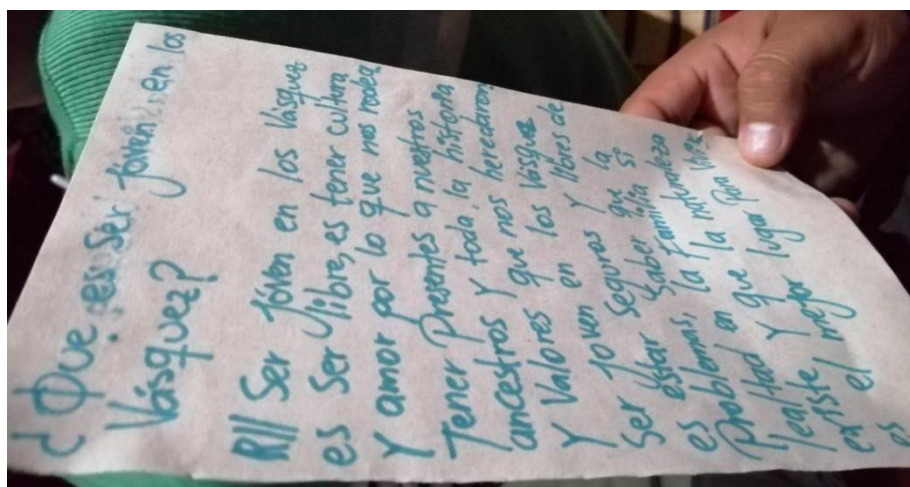 ¿Que es ser joven en los
Vásquez?
R// Ser Joven en los Vásquez
es Ser libre, es tener cultura
Y amor por lo que nos rodea
Tener Presentes a nuestros
ancestros Y toda la historia
Y Valores que nos heredaron,
Ser Joven en los Vásquez
es estar seguros Y libres de
Problemas, Saber que la
lealtad en la Familia si
existe Y que la naturaleza
es el mejor lugar Para Vivir